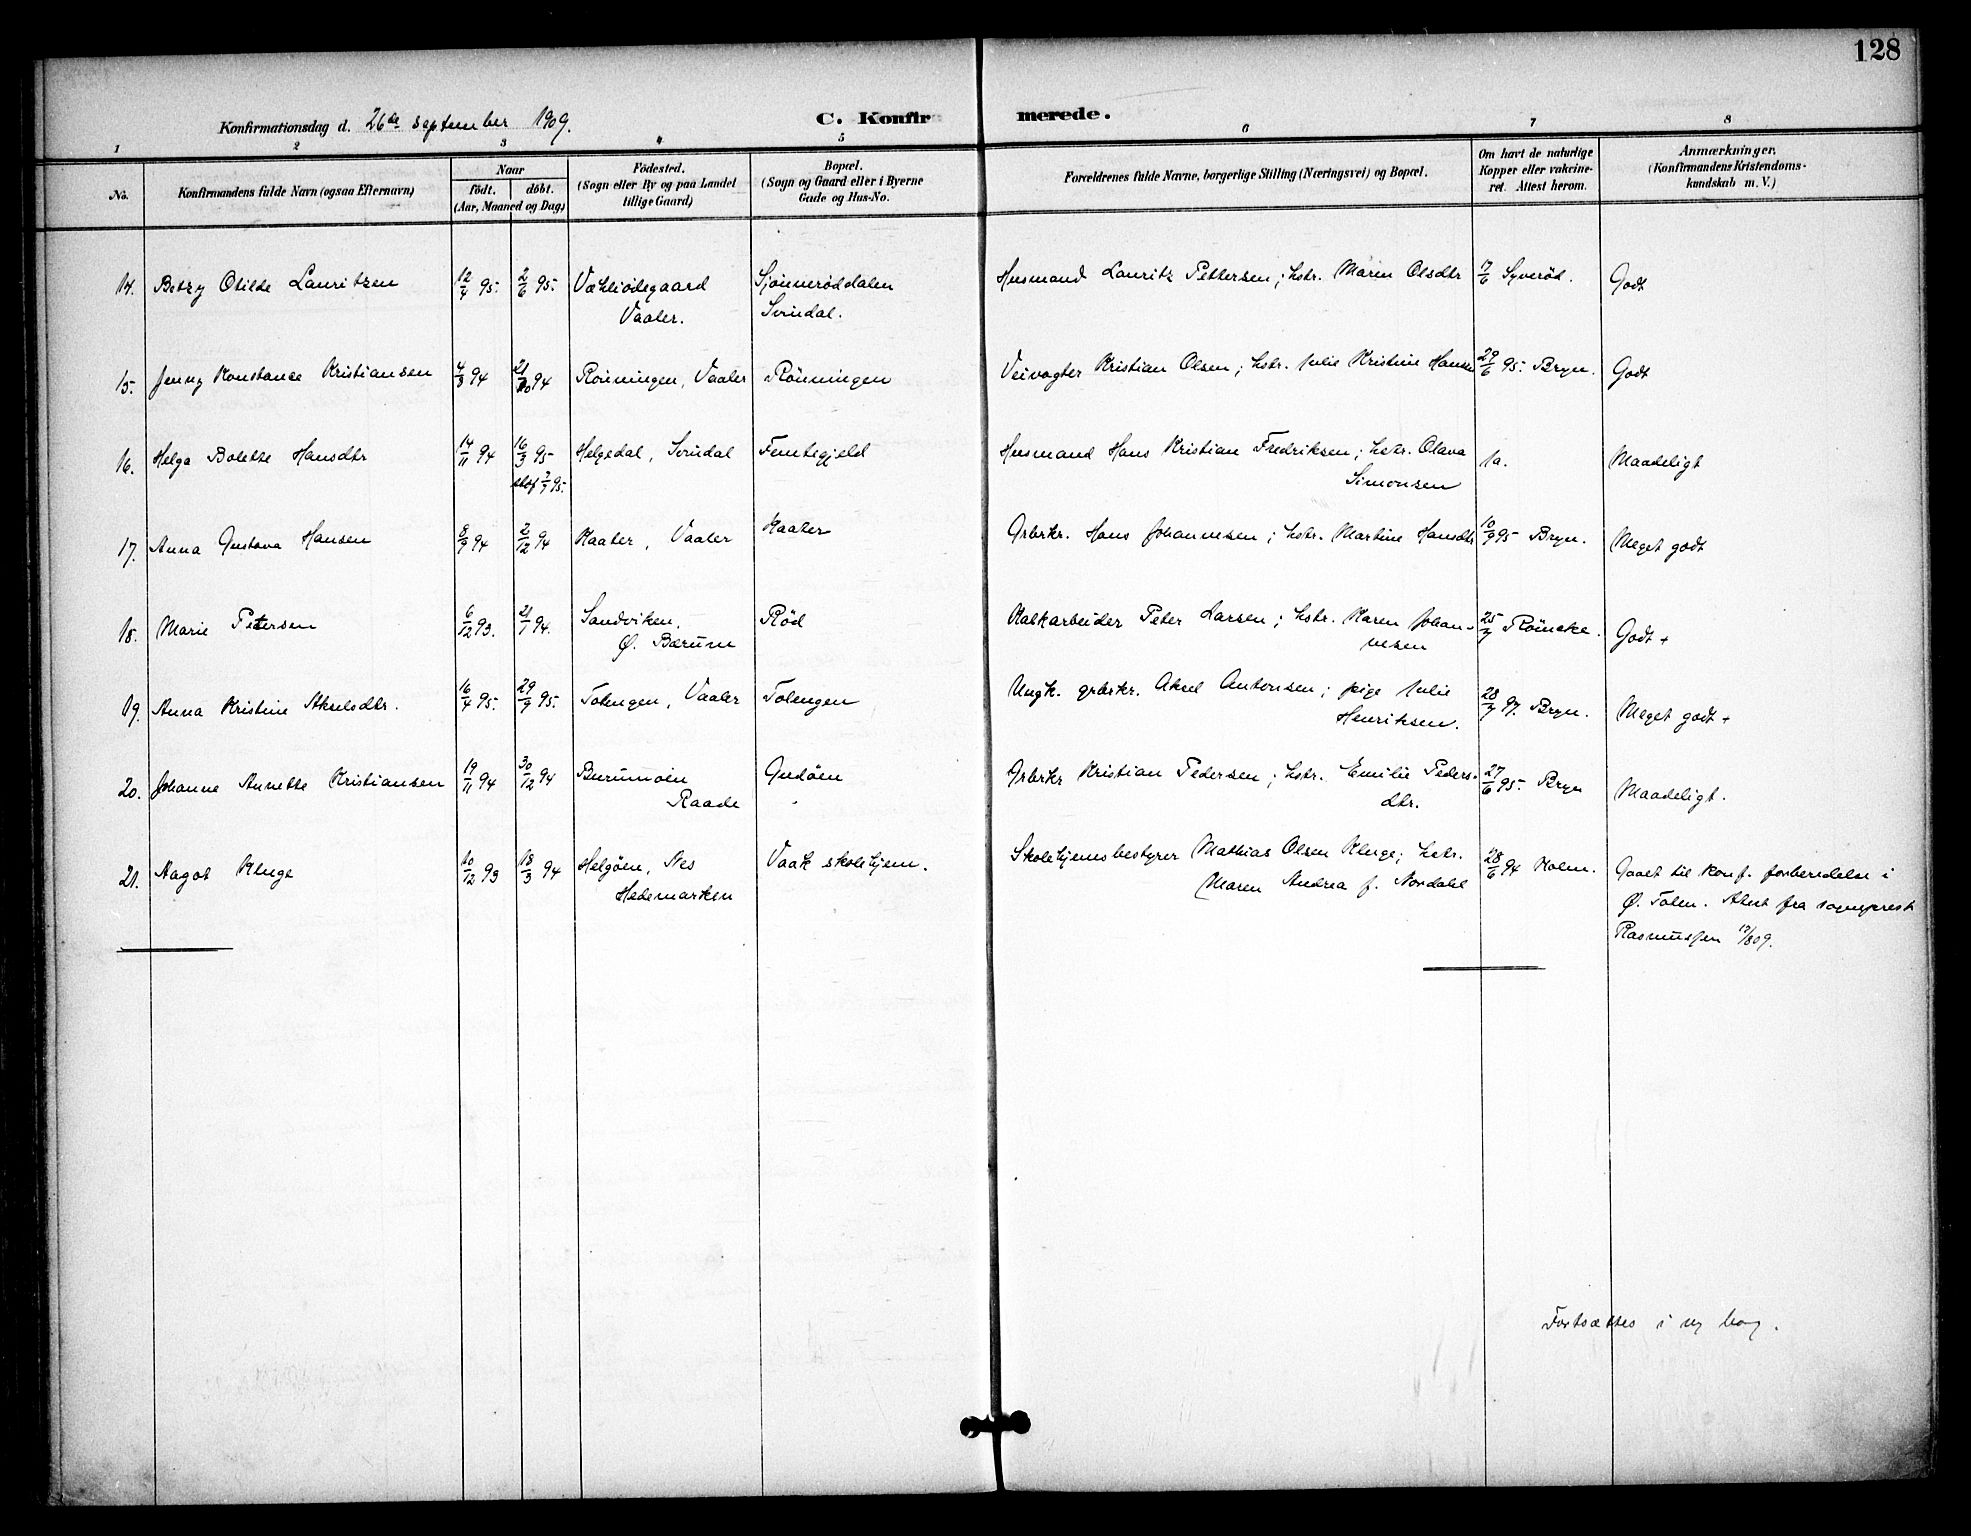 128
Konfirmationsdag d. 26de september 1909.
C. Konfir merede.
1 2 3 4 5 6 7 8
No.
Konfirmandens fulde Navn (ogsaa Efternavn)
Naar
født. døbt.
(Aar, Maaned og Dag)
Fødested.
(Sogn eller By og paa Landet
tillige Gaard)
Bopæl.
(Sogn og Gaard eller i Byerne
Gade og Hus-No.
Forældrenes fulde Navne, borgerlige Stilling (Næringsvei) og Bopæl.
Om havt de naturlige
Kopper eller vakcine-
ret. Attest herom.
Anmærkninger.
(Konfirmandens Kristendoms-
kundskab m. V.)
14. Betzy Otilde Lauritzen 12/4 95. 2/6 95. Væhliødegaard Sjönnerøddalen Husmand Lauritz Pettersen; hstr. Maren Olsdtr 17/6 Syverød. Godt
Vaaler. Svindal.
15. Jenny Konstance Kristiansen 4/3 94 21/10 94 Rönningen, Vaaler Rönningen Veivogter Kristian Olsen; hstr. Julie Kristine Hansen 29/6 95. Bryn. Godt
16. Helga Bolette Hansdtr 14/11 94 16/3 95 Helgedal, Svindal Femtegjeld Husmand Hans Kristian Fredriksen; hstr. Olava Ia. Maadeligt
stdf 7/7 95. Simonsen
17. Anna Gustava Hansen 8/9 94 2/12 94 Kaater, Vaaler Kaater Grbrkr. Hans Johannesen; hstr. Martine Hansdtr 10/9 95 Bryn. Meget godt
18. Marie Petersen 6/12 93. 21/1 94. Sandviken, Röd Kalkarbeider Peter Larsen; hstr. Karen Johan- 25/7 Röineke. Godt +
Ø. Bærum nesen
19. Anna Kristine Akselsdtr. 16/4 95. 29/9 95. Tolengen, Vaaler Tolengen Ungk. grbrkr. Aksel Antonsen; pige Julie 28/7 97. Bryn. Meget godt +
Henriksen.
20. Johanne Annette Kristiansen 19/11 94 30/12 94 Burumoen Gudöen Grbrkr Kristian Pedersen; hstr. Emilie Peders- 27/6 95. Bryn Maadeligt.
Raade dtr.
21. Aagot Kluge 10/12 93 18/3 94 Helgöen, Nes Vaak skolehjem. Skolehjemsbestyrer Mathias Olsen Kluge; hstr. 28/6 94 Holm. Gaaet til konf. forberedelse i
Hedemarken Maren Andrea f. Nordahl Ø. Toten. Attest fra sogneprest
Rasmussen 17/8 09.
Fortsættes i ny bog.